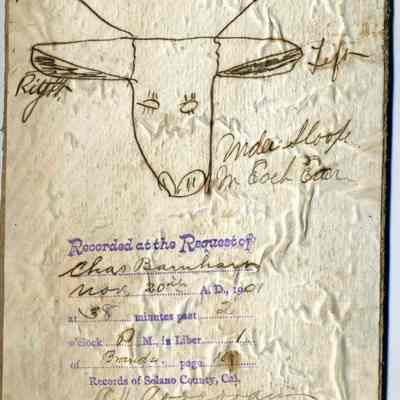 Right
Left
Under Sloope
in Each Ear
Recorded at the Request of
Chas Barnham
Nov. 20th A. D., 1901
at 38 minutes past 2
o'clock P M., in Liber 1
of Brands page
Records of Solano County, Cal.